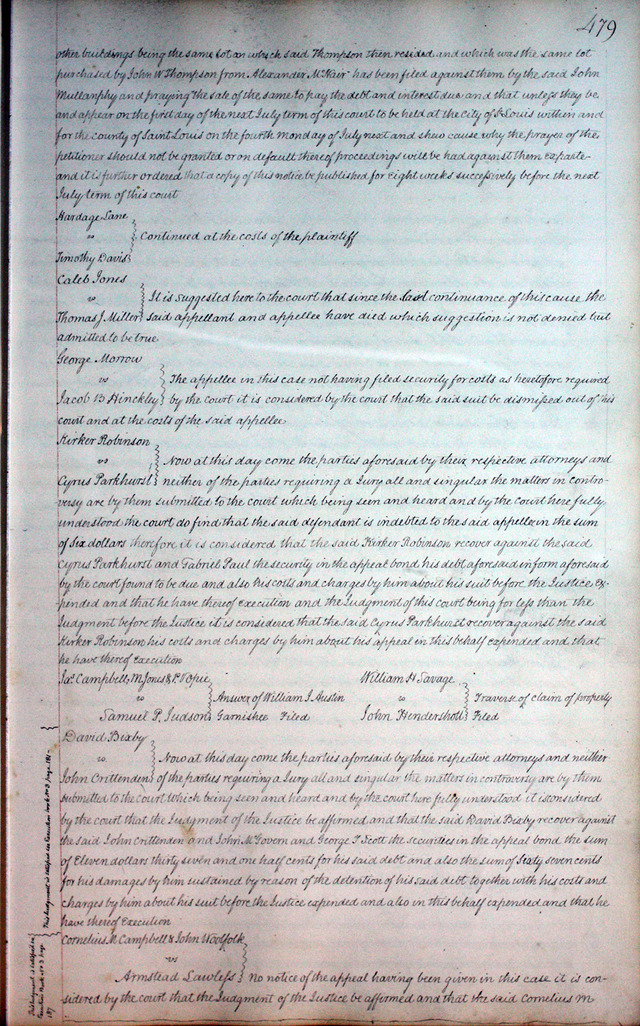 479
other buildings being the same lot on which said Thompson then resided and which was the same lot
purchased by John W Thompson from Alexander McNair has been filed against them by the said John
Mullanphy and praying the sale of the same to pay the debt and interest due and that unless they be
and appear on the first day of the next July term of this court to be held at the city of St Louis within and
for the county of Saint Louis on the fourth Monday of July next and shew cause why the prayer of the
petitioner should not be granted or on default thereof proceedings will be had against them exparte
and it is further ordered that a copy of this notice be published for eight weeks successively before the next
July term of this court
Hardage Lane
vs
Continued at the costs of the plaintiff
Timothy Davis
Caleb Jones
vs
It is suggested here to the court that since the last continuance of this cause the
Thomas J. Miller said appellant and appellee have died which suggestion is not denied but
admitted to be true
George Morrow
vs
The appellee in this case not having filed security for costs as heretofore required
Jacob B Hinckley by the court it is considered by the court that the said suit be dismissed out of this
court and at the costs of the said appellee
Kirker Robinson
vs
Now at this day come the parties aforesaid by their respective attorneys and
Cyrus Parkhurst neither of the parties requiring a Jury all and singular the matters in contro-
versy are by them submitted to the court which being seen and heard and by the court here fully
understood the court do find that the said defendant is indebted to the said appellee in the sum
of Six dollars therefore it is considered that the said Kirker Robinson recover against the said
Cyrus Parkhurst and Gabriel Paul the security in the appeal bond his debt aforesaid in form aforesaid
by the court found to be due and also his costs and charges by him about his suit before the Justice ex-
pended and that he have thereof execution and the Judgment of this court being for less than the
Judgment before the Justice it is considered that the said Cyrus Parkhurst recover against the said
Kirker Robinson his costs and charges by him about his appeal in this behalf expended and that
he have thereof Execution
Jas. Campbell, M Jones &
vs
Answer of William J. Austin
Samuel P. Judson Garnishee Filed
William H Savage
vs
Traverse of claim of property
John Hendershott Filed
David Bixby
vs
Now at this day come the parties aforesaid by their respective attorneys and neither
John Crittenden of the parties requiring a Jury all and singular the matters in controversy are by them
submitted to the court which being seen and heard and by the court here fully understood it is considered
by the court that the Judgment of the Justice be affirmed and that the said David Bixby recover against
the said John Crittenden and John McGovern and George F. Scott the securities in the appeal bond the sum
of Eleven dollars thirty seven and one half cents for his said debt and also the sum of sixty seven cents
for his damages by him sustained by reason of the detention of his said debt together with his costs and
charges by him about his suit before the Justice expended and also in this behalf expended and that he
have thereof Execution
This Judgment is satisfied see Execution book No 3 page
Cornelius M Campbell & John Woolfolk
vs
Armstead Lawless No notice of the appeal having been given in this case it is con-
sidered by the court that the Judgment of the Justice be affirmed and that the said Cornelius M
This Judgment is satisfied see
Execution Book No 3 page